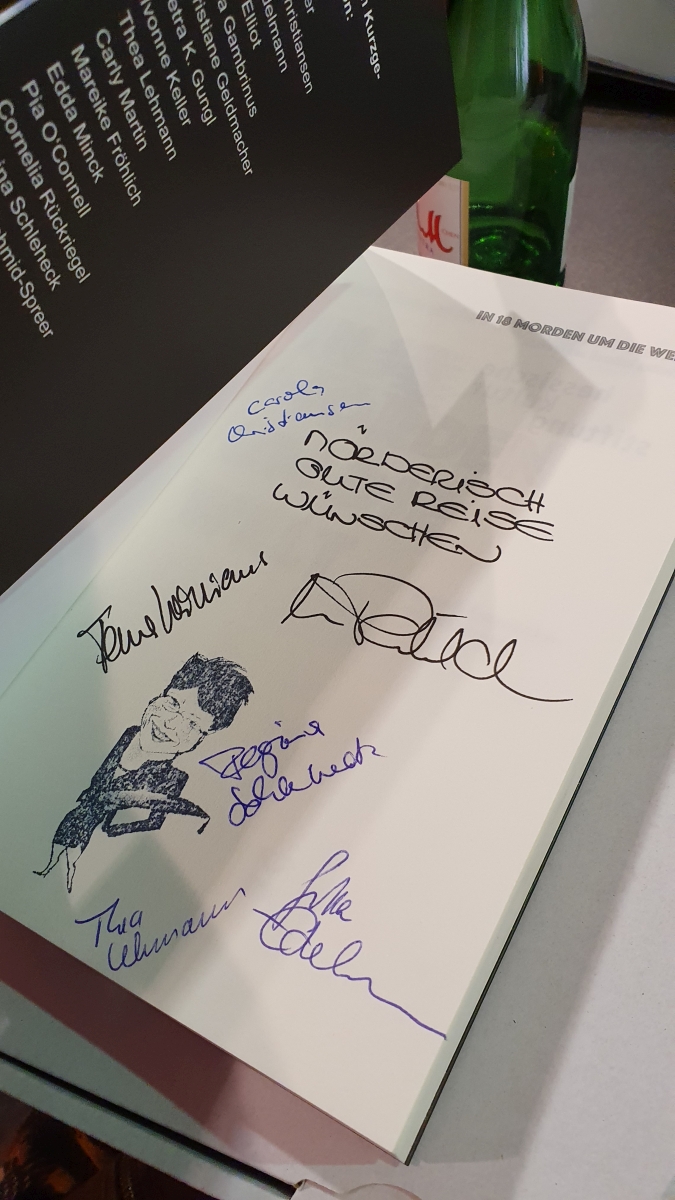 n Kurzge-
n:
er
hristiansen
delmann
Elliot
a Gambrinus
ristiane Geldmacher
etra K. Gungl
vonne Keller
Thea Lehmann
Carly Martin
Mareike Fröhlich
Edda Minck
Pia O'Connell
Cornelia Rückriegel
ina Schleheck
hmid-Spreer
IN 18 MORDEN UM DIE WE
Carola
Christiansen
MÖRDERISCH
GUTE REISE
WÜNSCHEN
Regina
Schleheck
Thea
Lehmann